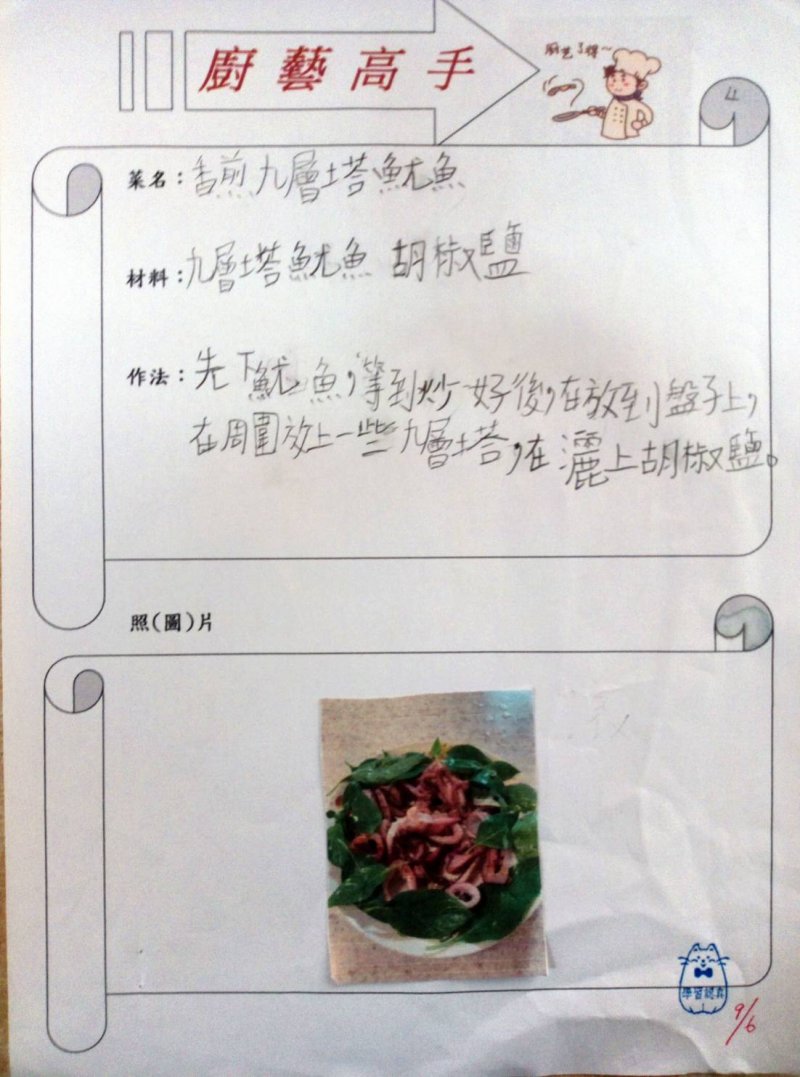 廚藝高手
廚藝了得~
4
菜名：香煎九層塔魷魚
材料：九層塔魷魚 胡椒鹽
作法：先下魷魚，等到炒好後，在放到盤子上，
在周圍放上一些九層塔，在灑上胡椒鹽。
照(圖)片
9/6